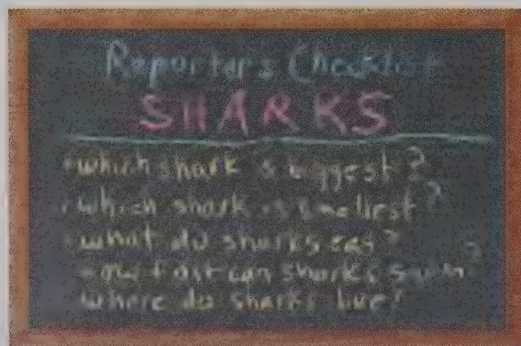 Reporters Checklist
SHARKS
• which shark is biggest?
• which shark is smallest?
• what do sharks eat?
• How fast can sharks swim?
where do sharks live?